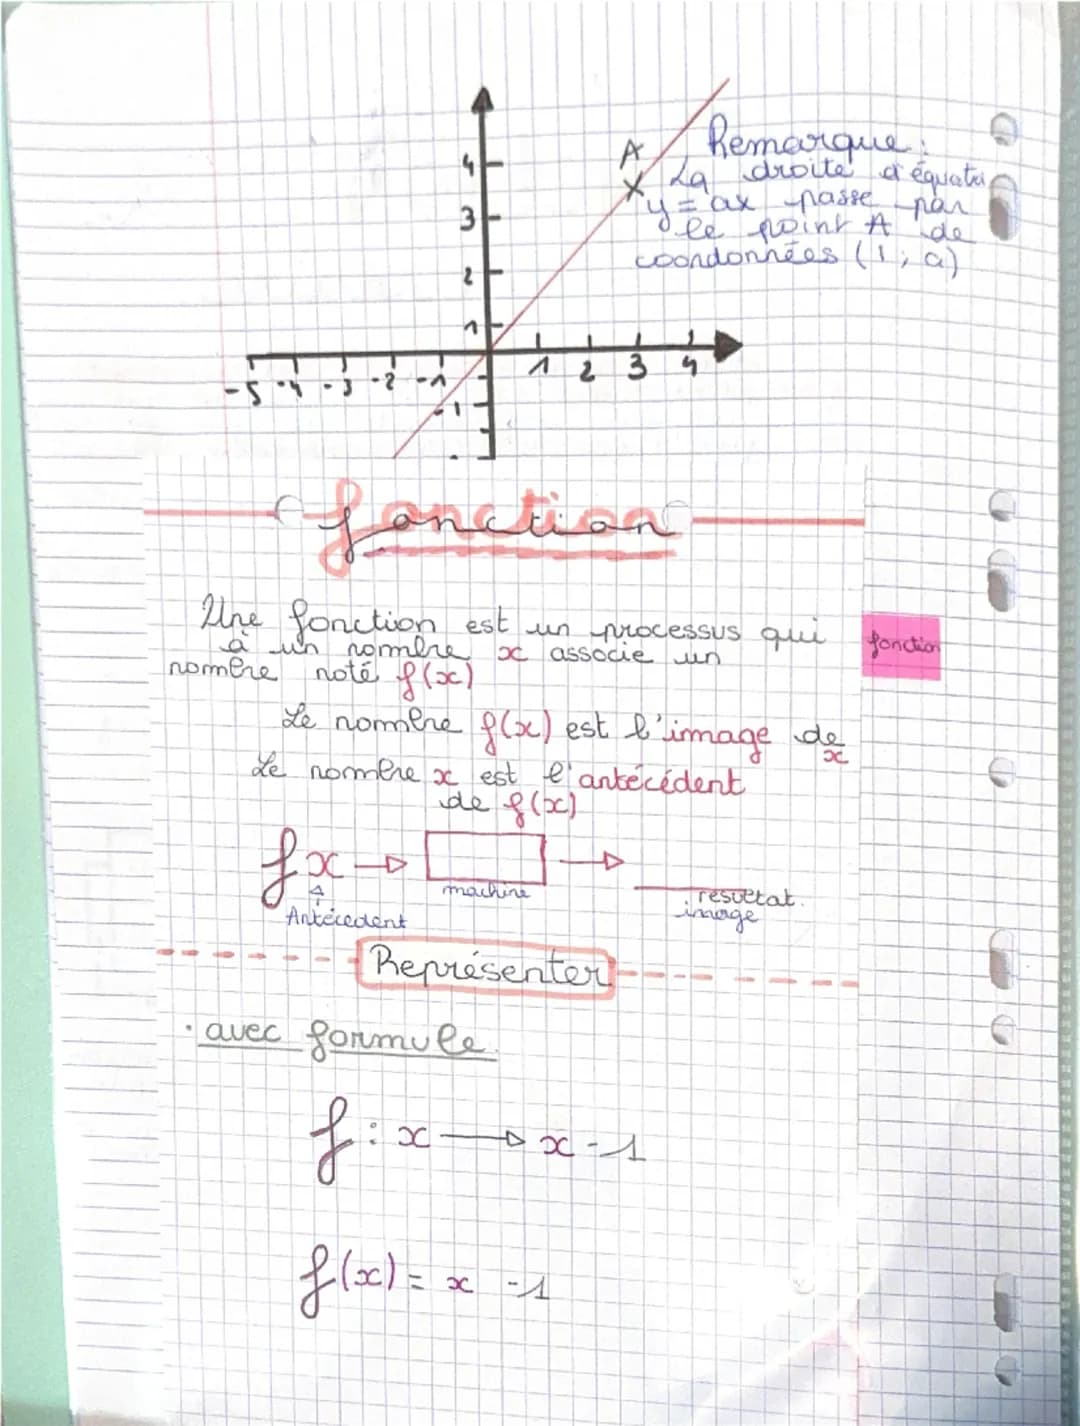 A
Remarque :
La droite d'équatio
y = ax passe par
le point A de
coordonnées (1 ; a)
4
3
2
1
-5 -4 -3 -2 -1 1 2 3 4
-1
fonction
Une fonction est un processus qui
à un nombre x associe un
nombre noté f(x)
fonction
Le nombre f(x) est l'image de
x
Le nombre x est l'antécédent
de f(x)
f x
machine
résultat.
image
Antécédent
Représenter
• avec formule
f : x → x - 1
f(x) = x - 1